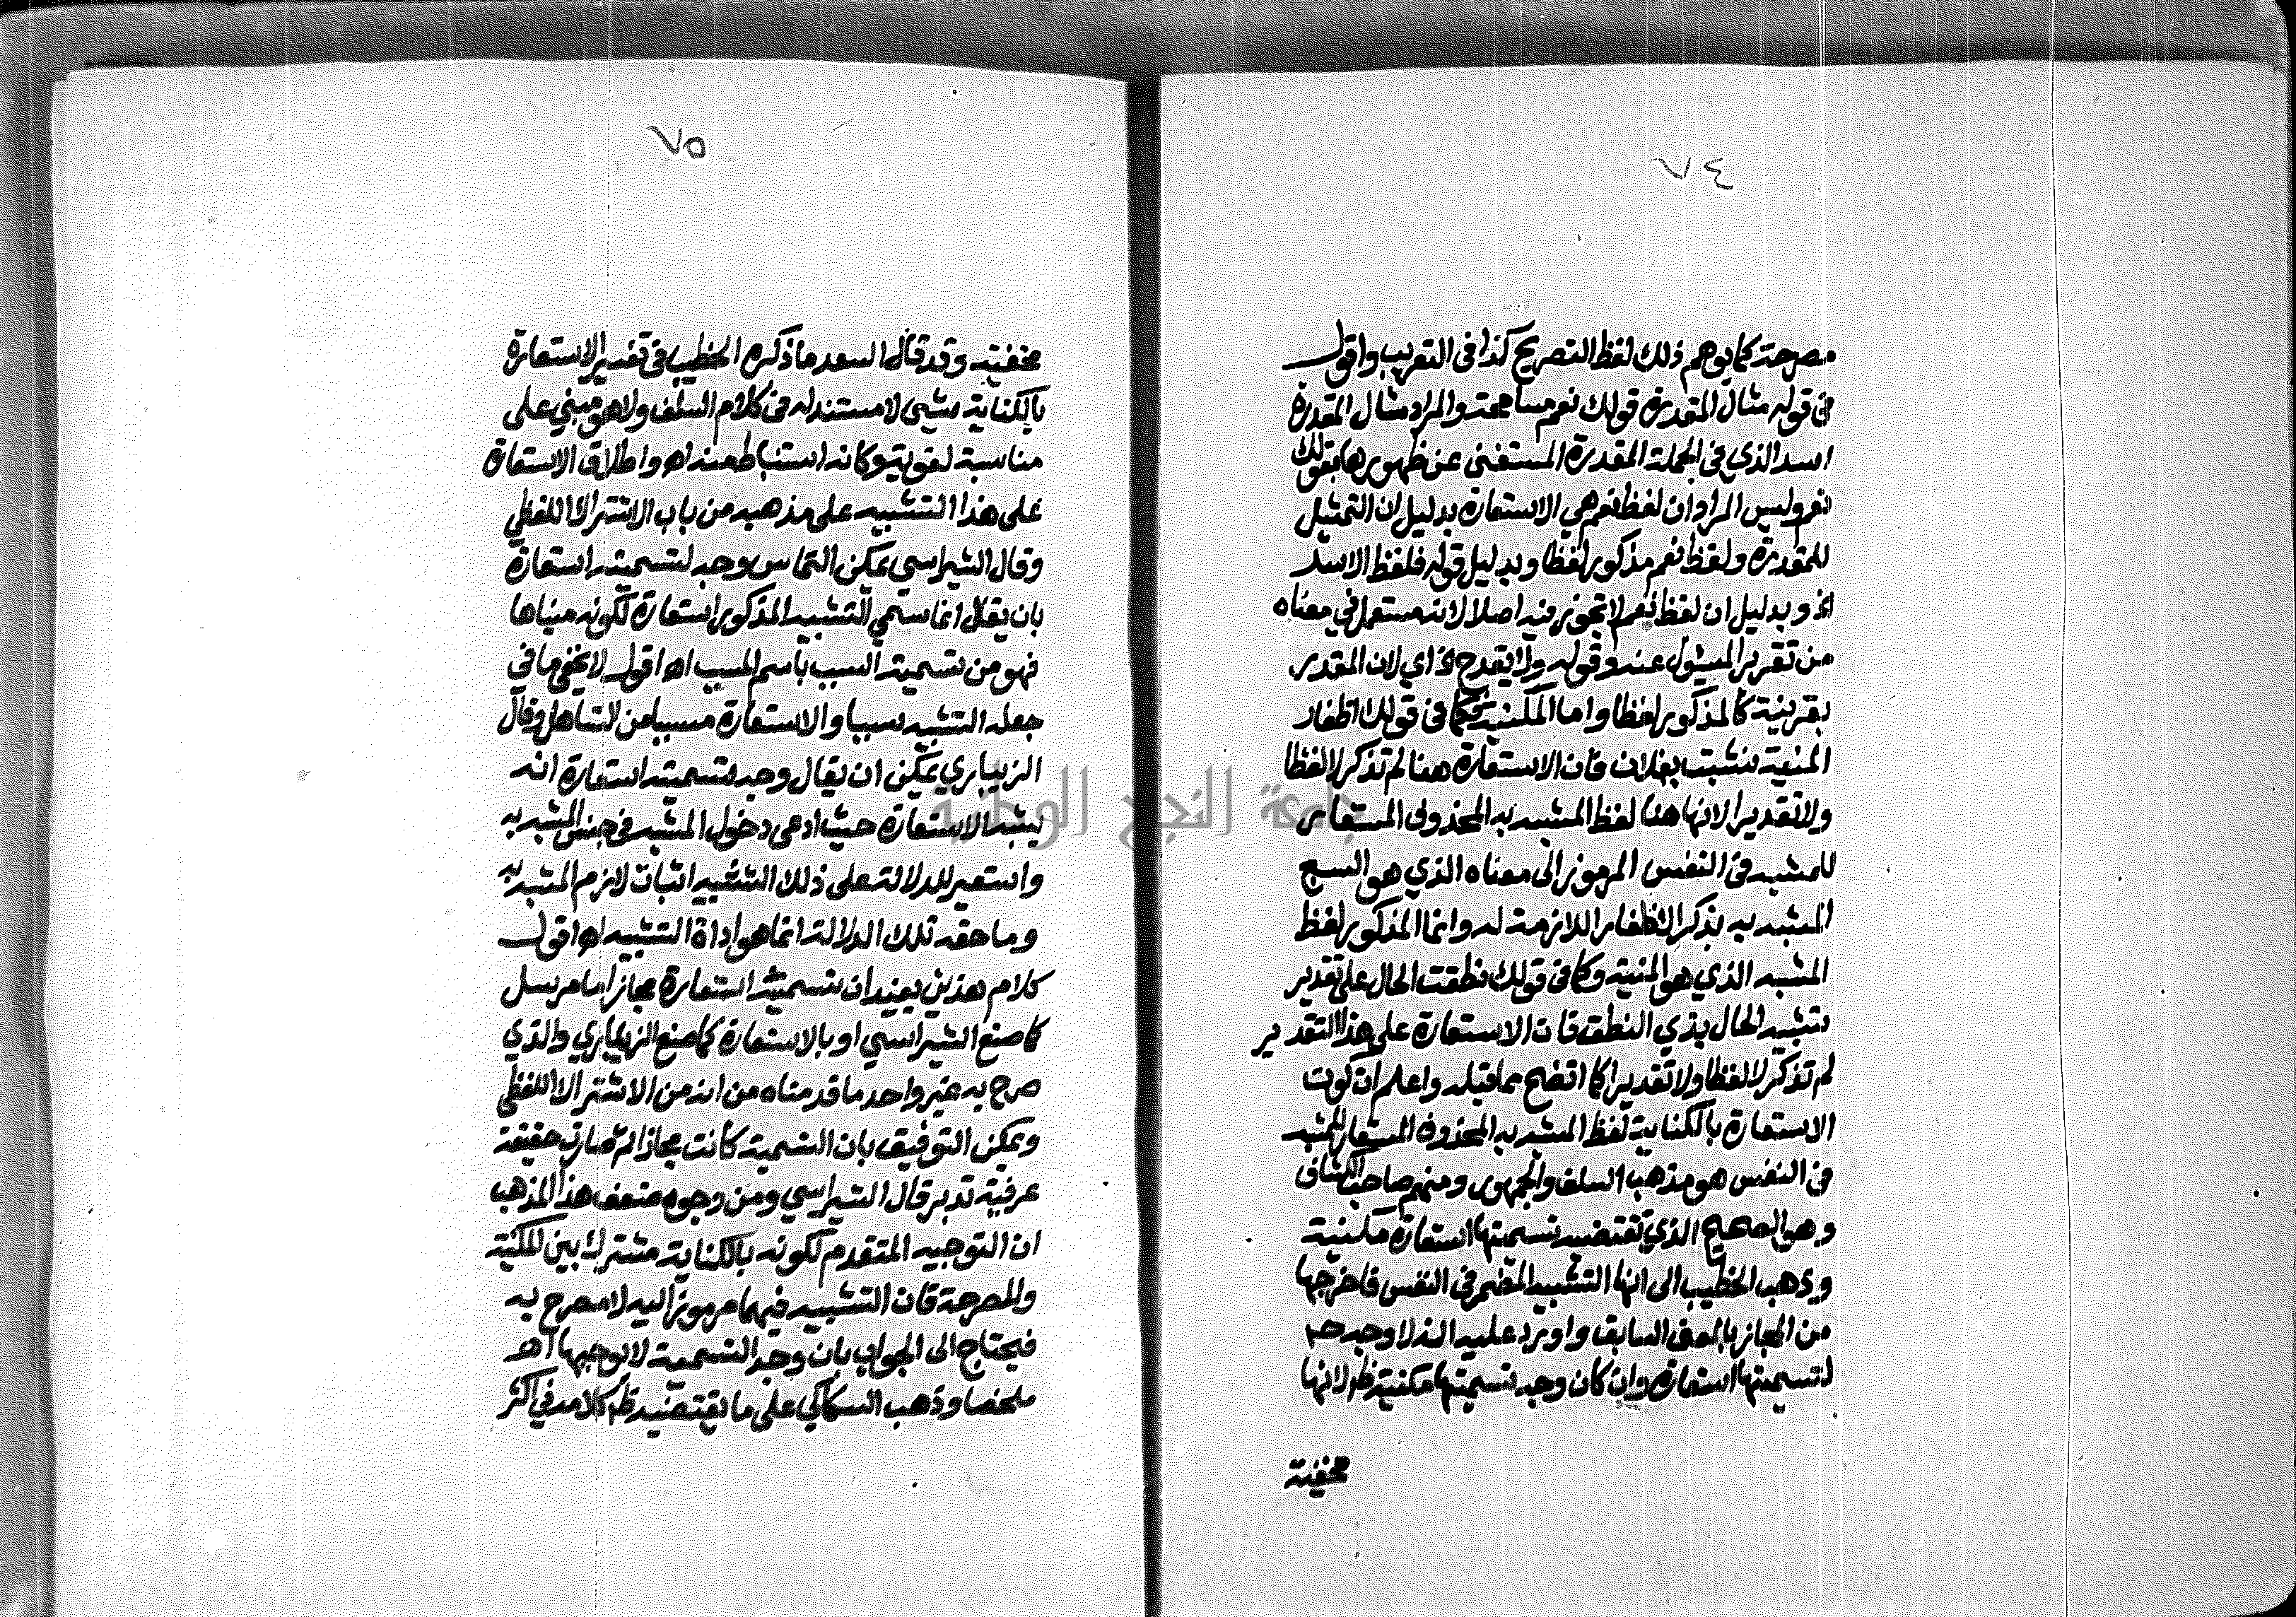 ٧٤
مصرحة كما يوهم ذلك لفظ التصريح كذا في التعريب واقول
في قوله مثال المقدرة قولك نعم مسامحة والمراد مثال المقدرة
اسد الذي في الجملة المقدرة المستغنى عن ظهورها بقولك
نعم وليس المراد ان لفظ نعم هي الاستعارة بدليل ان التمثيل
للمقدرة ولفظ نعم مذكور لفظا وبدليل قوله فلفظ الاسد
الخ وبدليل ان لفظ نعم لا تجوز فيه اصلا لانه مستعمل في معناه
من تقرير المسئول عنه وقوله ولا يقدح الخ اي لان المقدر
بقرينة كالمذكور لفظا واما المكنية فكما في قولك اظفار
المنية نشبت بفلان فان الاستعارة هنا لم تذكر لا لفظا
ولا تقديرا لانها هنا لفظ المشبه به المحذوف المستعار
للمشبه في النفس المرموز الى معناه الذي هو السبع
المشبه به بذكر الاظفار اللازمة له وانما المذكور لفظ
المشبه الذي هو المنية وكما في قولك نطقت الحال على تقدير
تشبيه الحال بذي النطق فان الاستعارة على هذا التقدير
لم تذكر لا لفظا ولا تقديرا كما اتضح مما قبله واعلم ان كون
الاستعارة بالكناية لفظ المشبه به المحذوف المستعار للمشبه
في النفس هو مذهب السلف والجمهور ومنهم صاحب الكشاف
وهو الصحيح الذي تقتضيه تسميتها استعارة مكنية
وذهب الخطيب الى انها التشبيه المضمر في النفس فاخرجها
من المجاز بالمعنى السابق واورد عليه انه لا وجه ح
لتسميتها استعارة وان كان وجه تسميتها مكنية ظم لانها
مخفية
٧٥
مخفية وقد قال السعد ما ذكره الخطيب في تفسير الاستعارة
بالكناية شيئ لا مستند له في كلام السلف ولا هو مبني على
مناسبة لغوية وكانه استنباط منه اهـ واطلاق الاستعارة
على هذا التشبيه على مذهبه من باب الاشتراك اللفظي
وقال الشيراسي يمكن التماس وجه لتسميته استعارة
بان يقال انما سمي التشبيه المذكور استعارة لكونه مبناها
فهو من تسمية السبب باسم المسبب اهـ اقول لا يخفى ما في
جعله التشبيه سببا والاستعارة مسببا من التساهل وقال
الزيباري يمكن ان يقال وجه تسميته استعارة انه
يشبه الاستعارة حيث ادعى دخول المشبه في جنس المشبه به
واستعير للدلالة على ذلك التشبيه اثبات لازم المشبه به
وما حقه تلك الدلالة انما هو اداة التشبيه اهـ اقول
كلام هذين يفيد ان تسميته استعارة مجاز اما مرسل
كما صنع الشيراسي او بالاستعارة كما صنع الزيباري والذي
صرح به غير واحد ما قدمناه من انه من الاشتراك اللفظي
ويمكن التوفيق بان التسمية كانت مجازا ثم صارت حقيقة
عرفية تدبر قال الشيراسي ومن وجوه ضعف هذا المذهب
ان التوجيه المتقدم لكونه بالكناية مشترك بين المكنية
والمصرحة فان التشبيه فيهما مرموز اليه لا مصرح به
فيحتاج الى الجواب بان وجه التسمية لا يوجبها اهـ
ملخصا وذهب السكاكي على ما يقتضيه ظم كلامه في اكثر
جامعة النجاح الوطنية